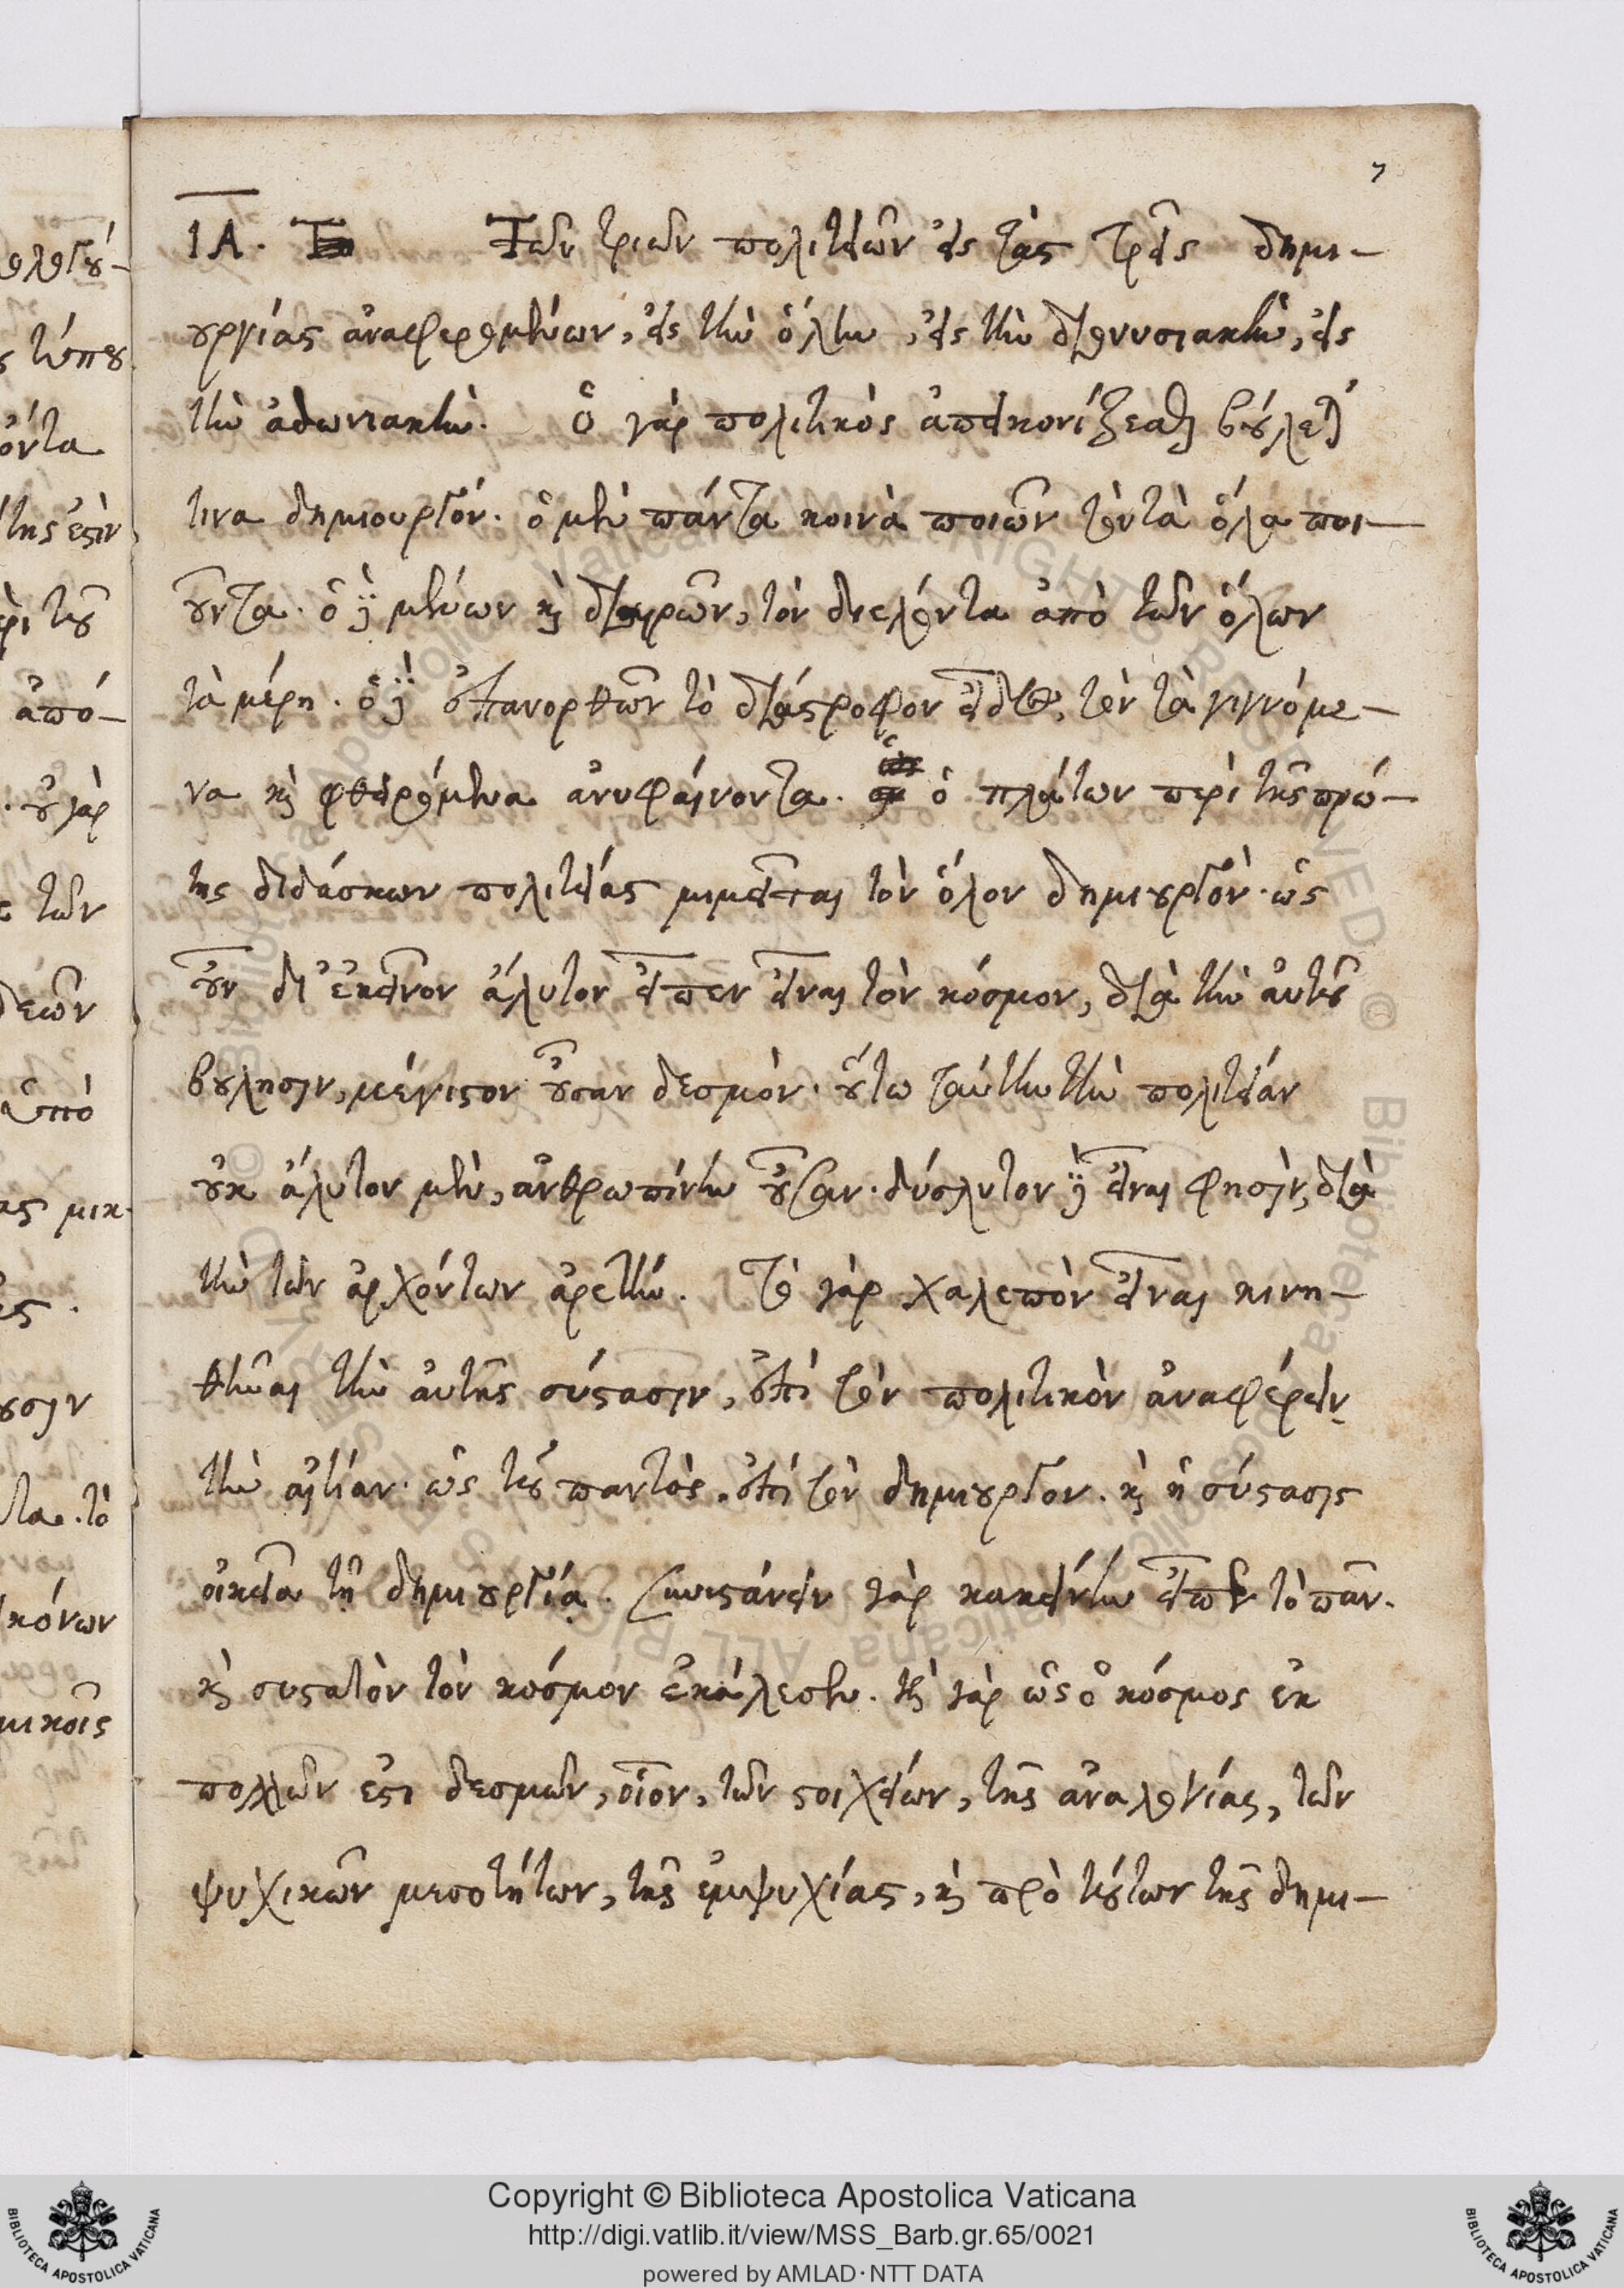 7
ΙΑ. Τῶν τριῶν πολιτειῶν εἰς τὰς τρεῖς δημι-
ουργίας ἀναφερομένων, εἰς τὴν ὅλην, εἰς τὴν διονυσιακὴν, εἰς
τὴν ἀδωνιακὴν. Ὁ γὰρ πολιτικὸς ἀπεικονίζεσθαι βούλεται
τινα δημιουργόν. ὁ μὲν πάντα κοινὰ ποιῶν τὸν τὰ ὅλα ποι-
οῦντα. ὁ δὲ μένων καὶ διαιρῶν, τὸν διελόντα ἀπὸ τῶν ὅλων
τὰ μέρη. ὁ δὲ ἐπανορθῶν τὸ διάστροφον εἶδος, τὸν τὰ γιγνόμε-
να καὶ φθειρόμενα ἀνυφαίνοντα. ὁ πλάτων περὶ τῆς πρώ-
της διδάσκων πολιτείας μιμεῖται τὸν ὅλον δημιουργόν. ὡς
οὖν δι' ἐκεῖνον ἄλυτον εἶπεν εἶναι τὸν κόσμον, διὰ τὴν αὐτοῦ
βουλησιν, μέγιστον οὖσαν δεσμόν. οὕτω ταύτην τὴν πολιτείαν
οὐκ ἄλυτον μὲν, ἀνθρωπίνην οὖσαν. δύσλυτον δὲ εἶναι φησὶν, διὰ
τὴν τῶν ἀρχόντων ἀρετήν. Τὸ γὰρ χαλεπὸν εἶναι κινη-
θῆναι τὴν αὐτῆς σύστασιν, ἐπὶ τὸν πολιτικὸν ἀναφέρειν
τὴν αἰτίαν. ὡς τοῦ παντὸς. ἐπὶ τὸν δημιουργόν. καὶ ἡ σύστασις
οἰκεῖα τῇ δημιουργίᾳ. συνιστάνειν γὰρ κακείνην εἶπε τὸ πᾶν.
καὶ συστατὸν τὸν κόσμον ἐκάλεσεν. καὶ γὰρ ὡς ὁ κόσμος ἐκ
πολλῶν ἐστι δεσμῶν, οἷον, τῶν στοιχείων, τῆς ἀναλογίας, τῶν
ψυχικῶν μεσοτήτων, τῆς ἐμψυχίας, καὶ πρὸ τούτων τῆς δημι-
ὄντα
ἀπό-
τῶν
ὑπὸ
Copyright © Biblioteca Apostolica Vaticana
http://digi.vatlib.it/view/MSS_Barb.gr.65/0021
powered by AMLAD·NTT DATA
BIBLIOTECA APOSTOLICA VATICANA
BIBLIOTECA APOSTOLICA VATICANA